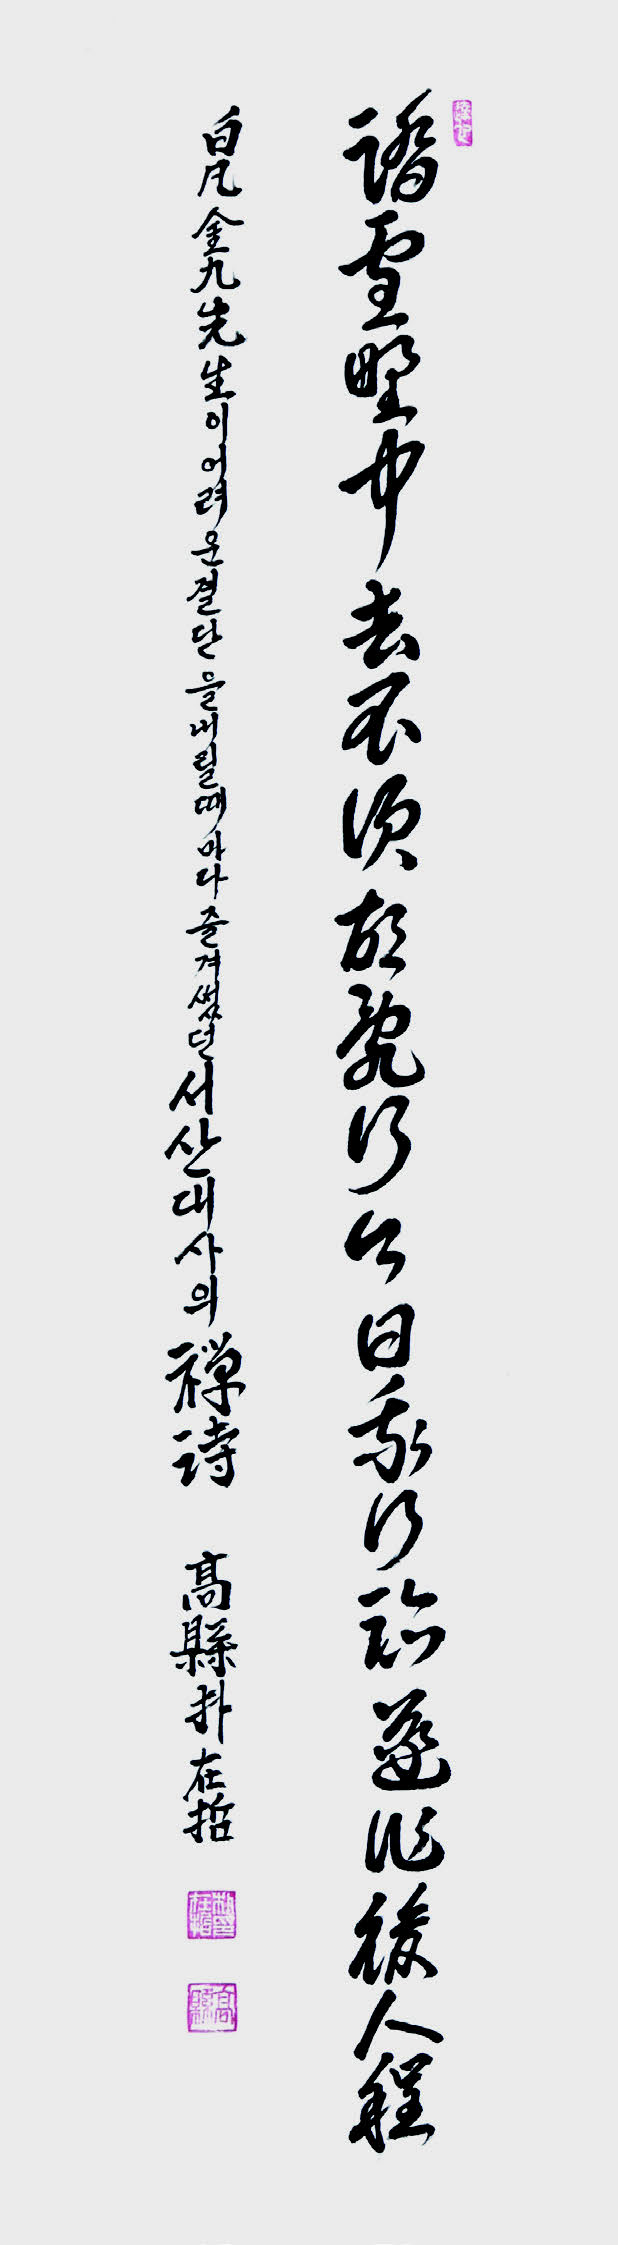 踏雪野中去不須胡亂行今日我行跡遂作後人程
白凡金九先生이 어려운 결단을 내릴때마다 즐겨썼던 서산대사의 禪詩 高縣 朴在哲
高縣